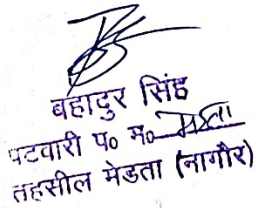 बहादुर सिंह
पटवारी प० म०
तहसील मेडता (नागौर)